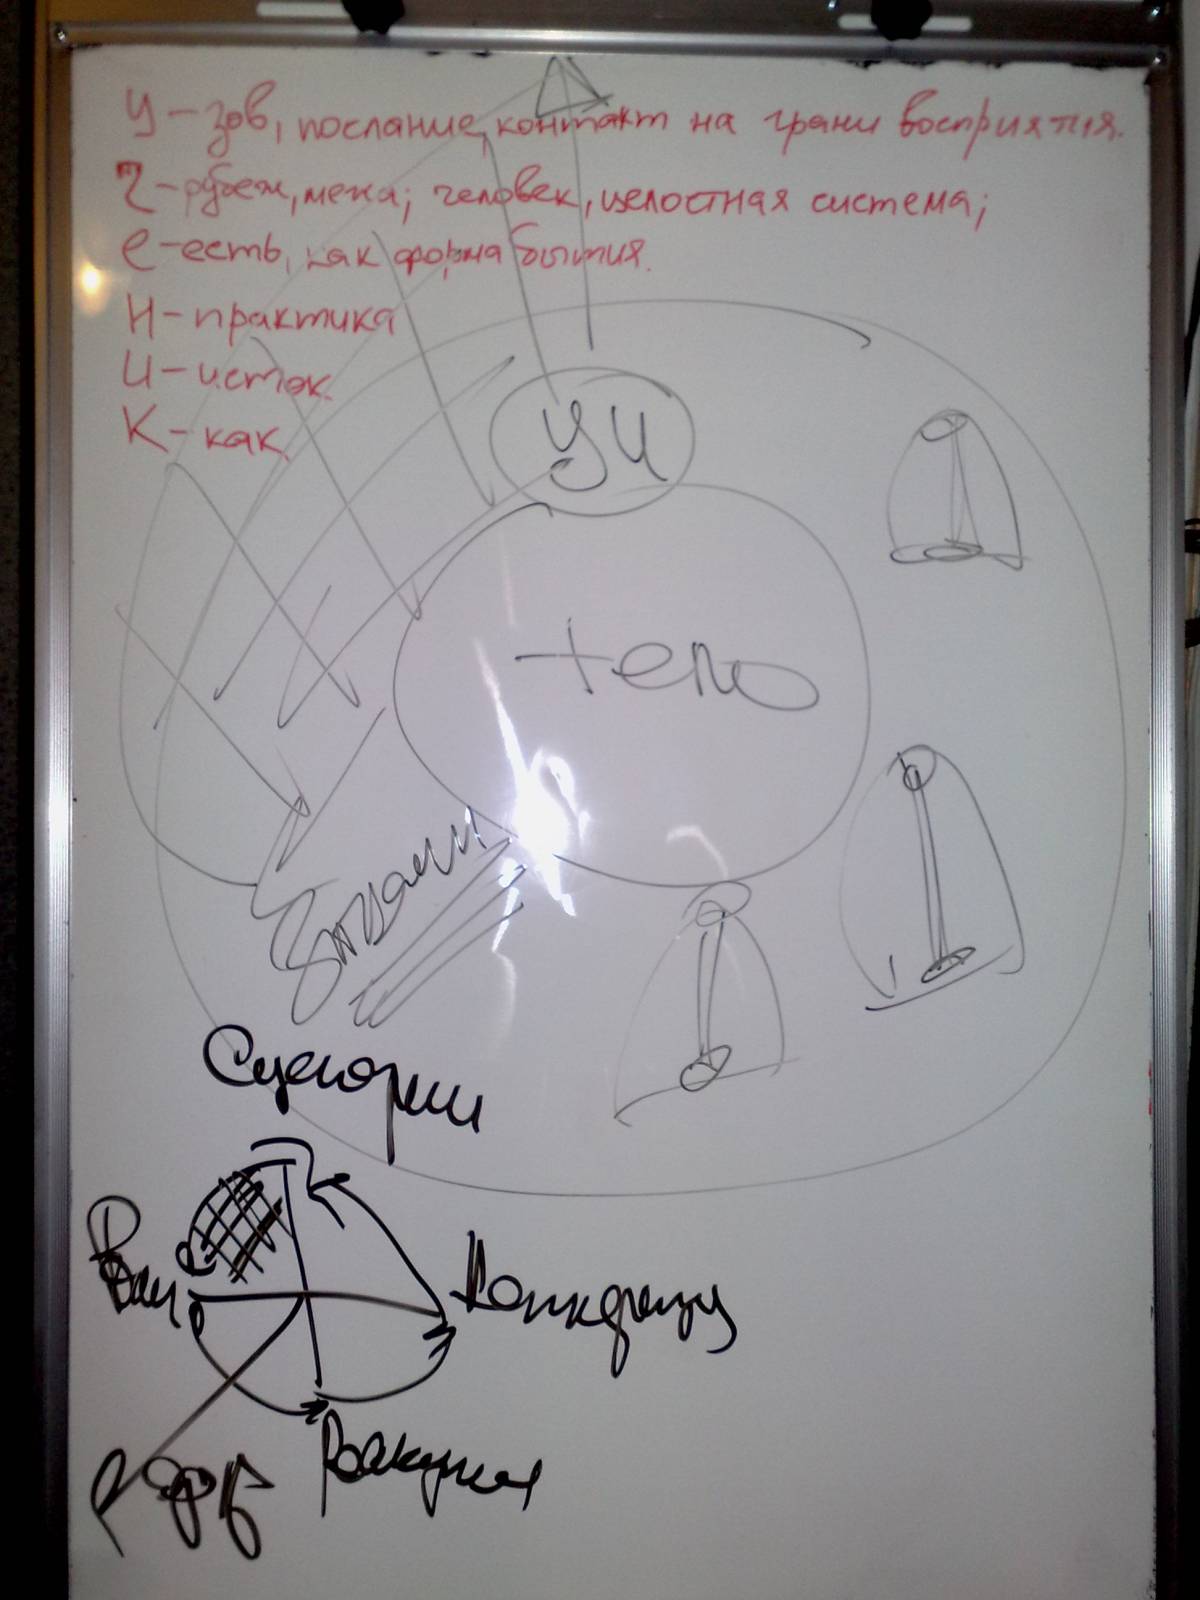 У – зов, послание, контакт на грани восприятия.
Ч – рубеж, межа; человек, целостная система;
е – есть, как форма бытия.
Н – практика
И – исток.
К – как.
УЧ
тело
Сценарии